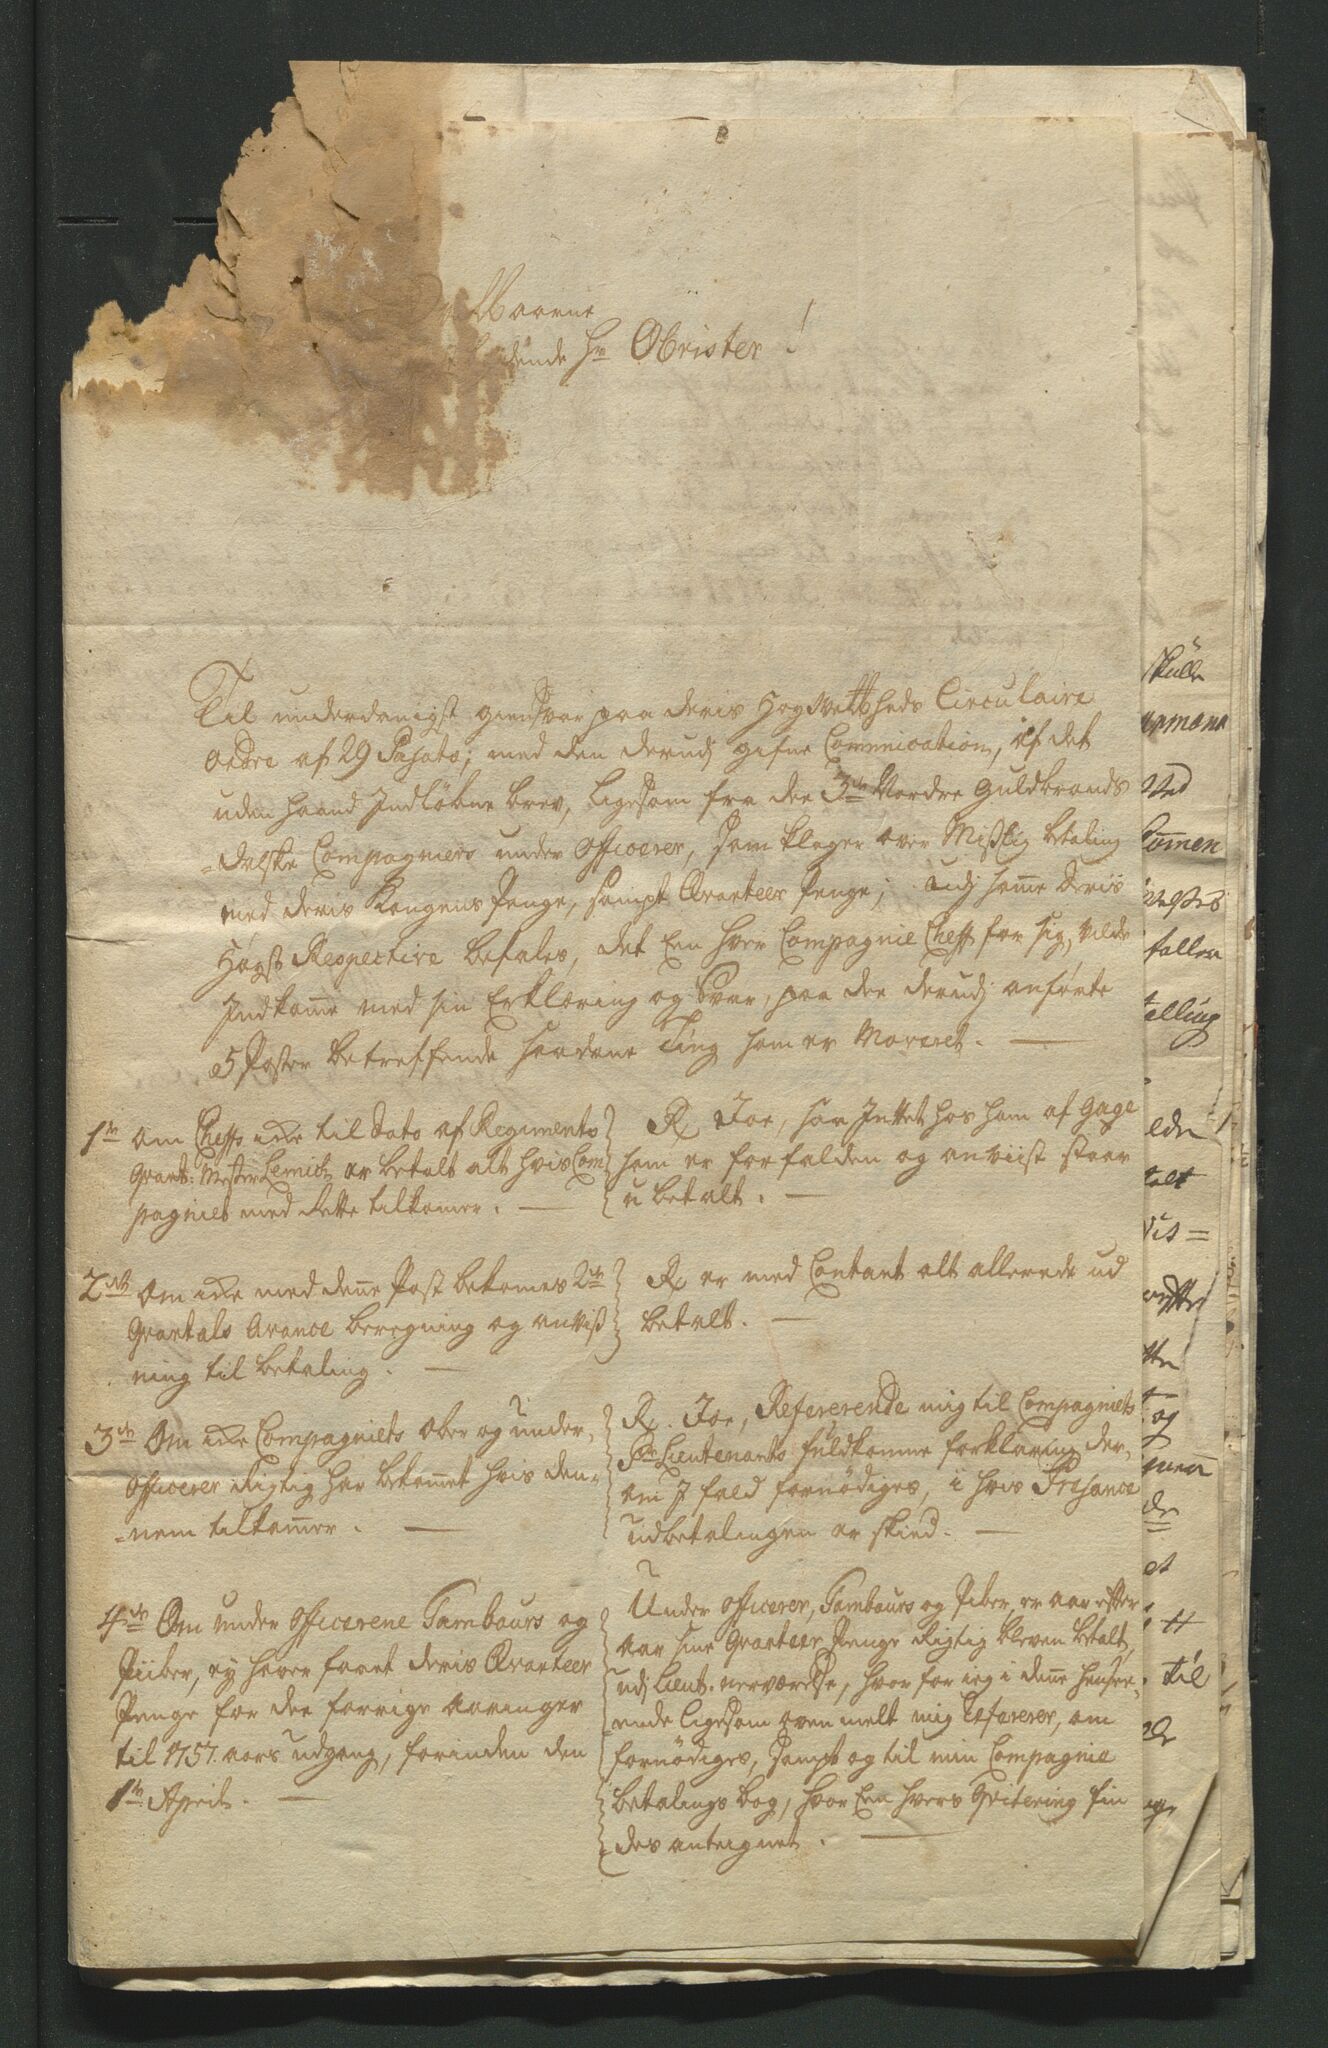 Baarne
dende Hr Obrister!
Til underdanigst giensvar paa deris HøyWelbheds Circulaire
Ordre af 29 Pasato; med den derudj gifne Commication, af det
uden haand Indkobne brev, ligesom fra dee 3de Nordre Guldbrands
=dalske Compagniers under Officerer, som klager over Mislig betaling
med deris Kongens Penge, sampt Qvarteer Penge; Udj hame Deris
Høyst Respective befales, det Een hver Compagnie Cheff for sig, vilde
Indkome med sin Erklæring og Svar, paa dee derudj anførte
5 Poster betreffende saadane Ting som er Moveret.
1te om Cheffs icke til Dato af Regiments
Qvart: Mester Lemich er betalt alt hvis Com
pagniet med dette tilkomer.
R Joe, saa Intet hos ham af Gage
som er forfalden og anviist staar
ubetalt.
2det Om icke med dene Post bekomes 2de
Qvartals Avance beregning og anvis
ning til betaling.
R er med Contant alt allerede ud
betalt.
3de Om icke Compagniets Ober og under
Officerer Rigtig har bekomet hvis den
=nem tilkommer.
R. Joe, Refererende mig til Compagniets
Pr Lieutenants fuldkomne forklaring der
om J fald fornødiges, i hvis Presance
udbetalingen er skied.
4de Om under Officerene Tambours og
Piiber, ey haver faaet deris Qvarteer
Penge for dee forrige Aaringer
til 1757. aars udgang, forinden den
1te April.
Under Officerer, Tambours og Piber er aar efter
aar sine Qvarteer Penge Rigtig bleven betalt,
udj Lieut. nerværelse, hvor for ieg i dene hense
ende ligesom oven melt mig Refererer, om
fornødiges, sampt og til min Compagnie
betalings bog, hvor Een hvers Qvitering fin
des anteignet.
skulle
Ved
Comen
faller
talling
til
og